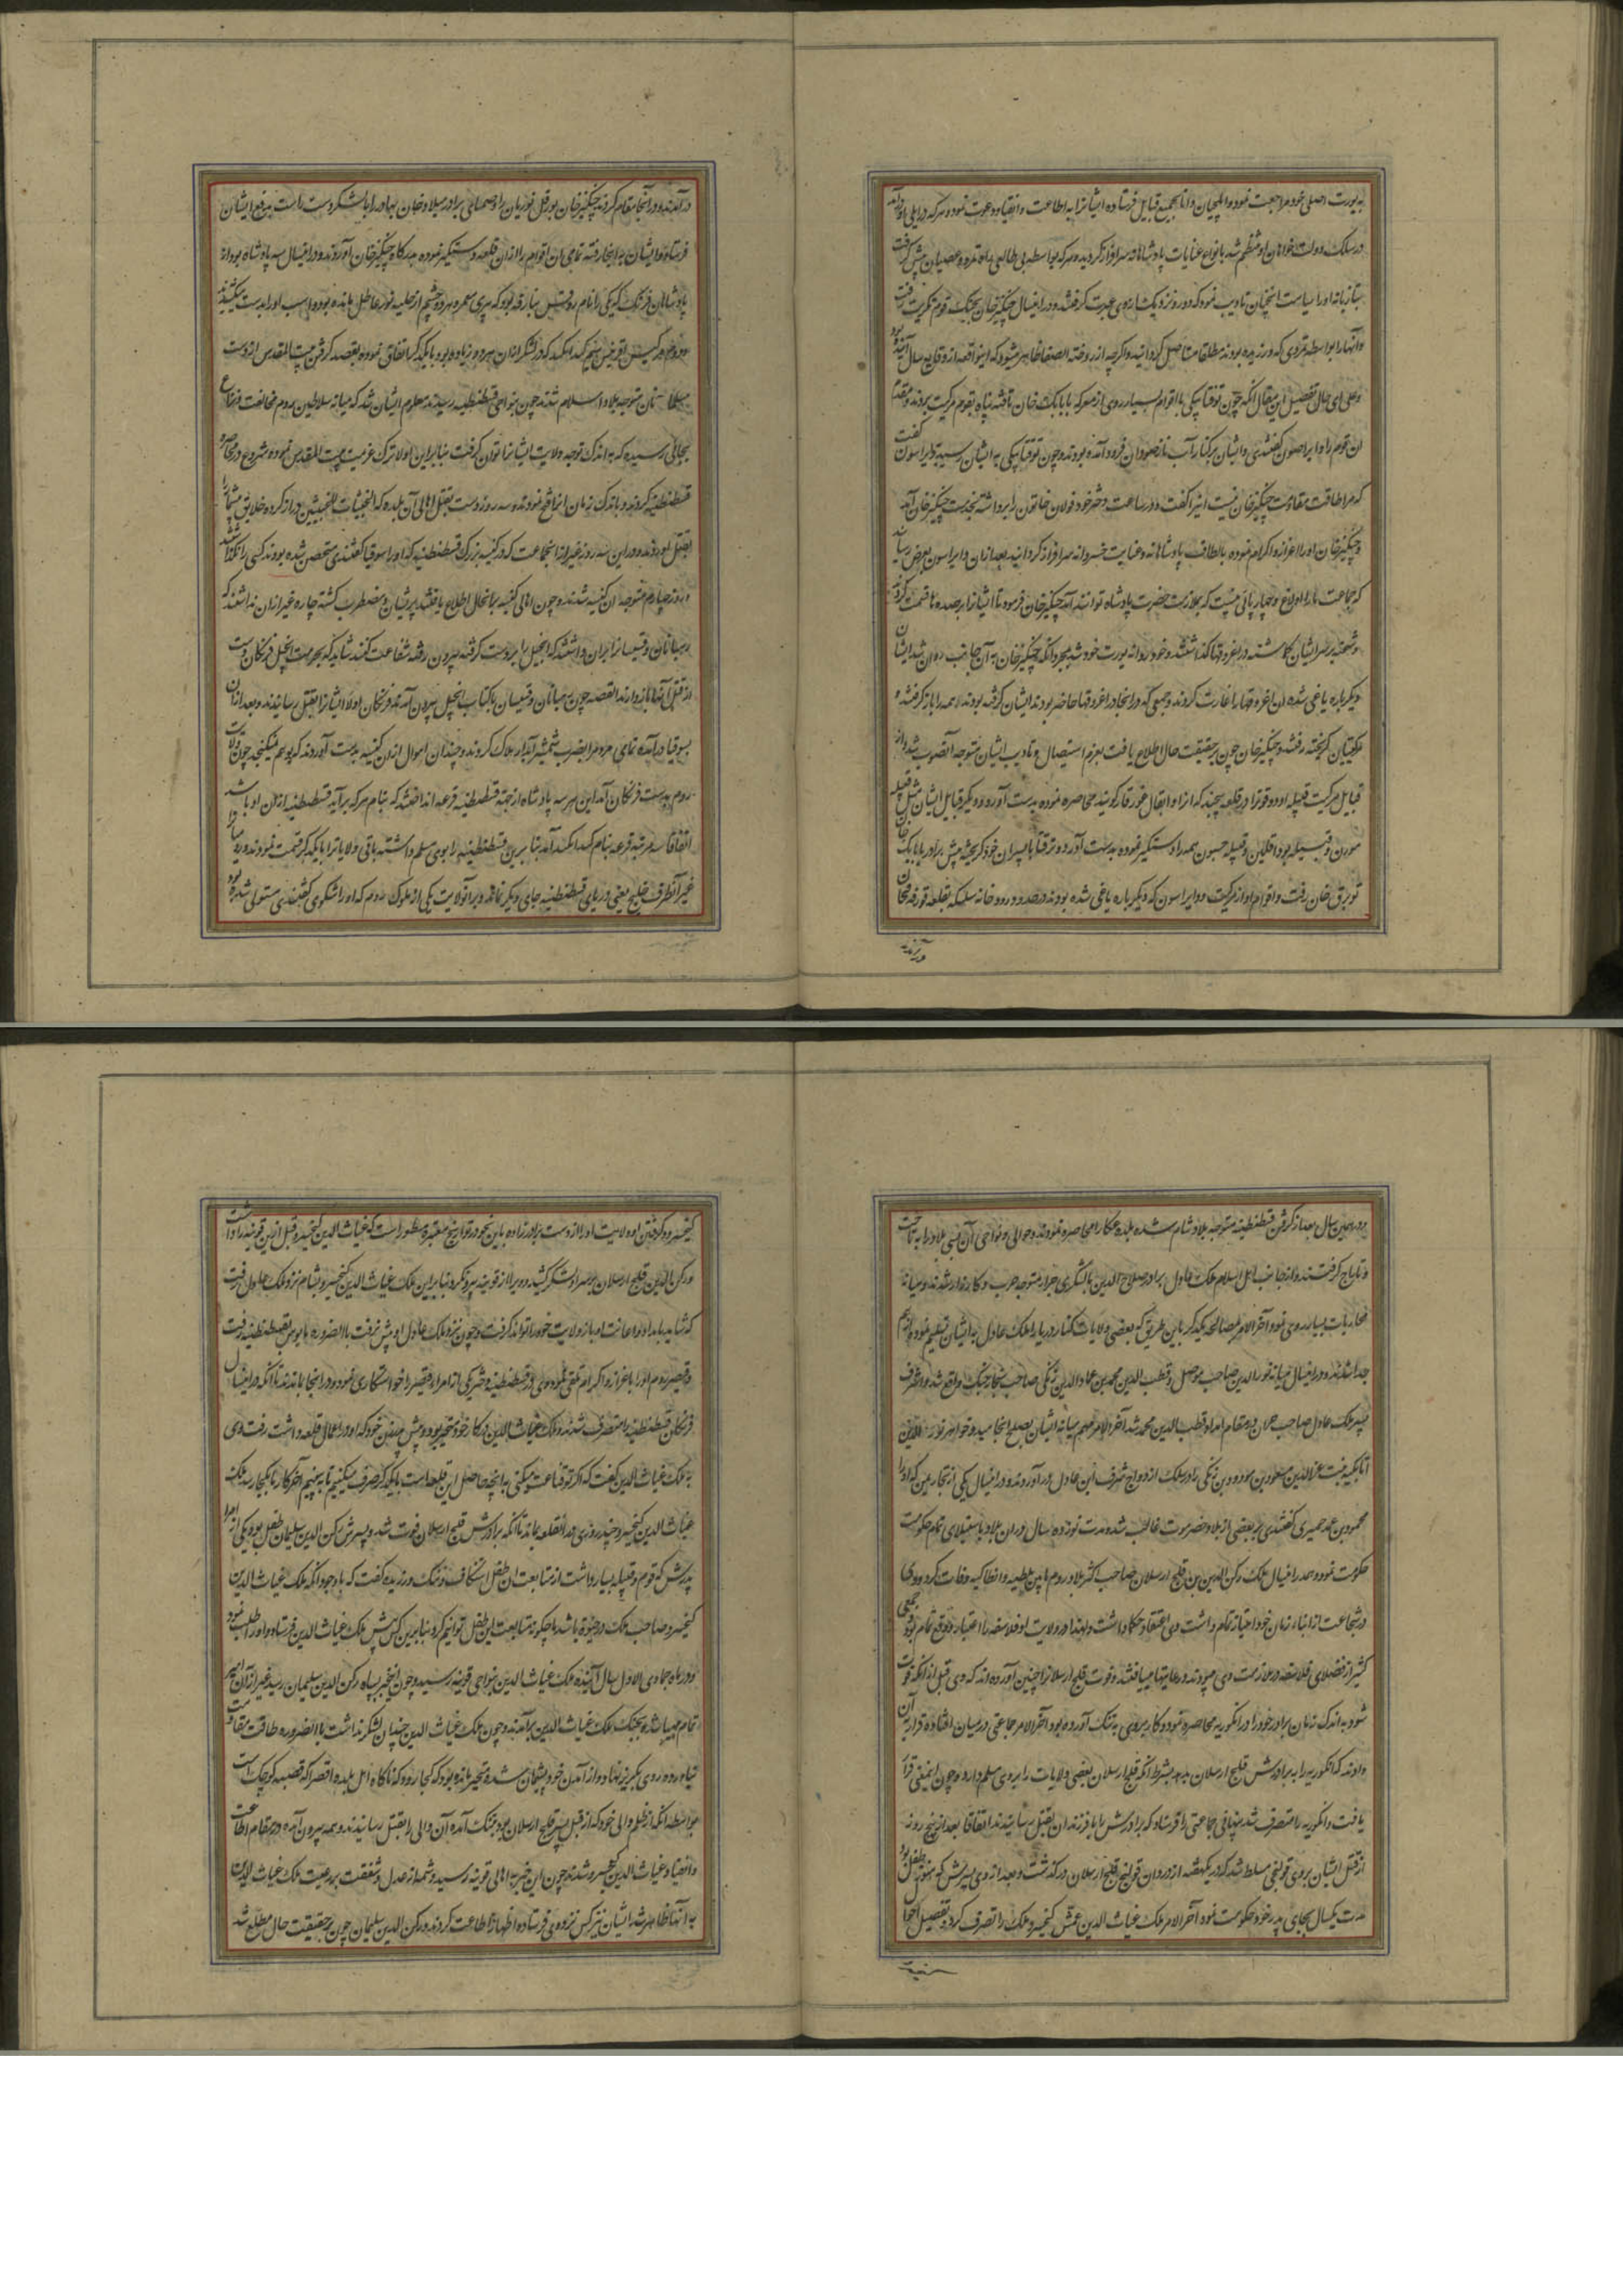 به یورت اصلی خود مراجعت نمود و ایلچیان دانا بجمیع قبایل فرستاده ایشانرا به اطاعت و انقیاد دعوت نمود و هر که در ایلی او درآمد
در سلک دولت‌خواهان او منتظم شد بانواع عنایات پادشاهانه سرافراز گردید و هر که بواسطه بی طالعی راه تمرد و عصیان پیش گرفت
بتازیانه اورا سیاست انچنان تادیب نمود که دور و نزدیک ازوی عبرت گرفتند و در اینسال چنگیزخان بجنگ قوم مکریت رفت
و انهارا بواسطه تمردی که ورزیده بودند مطلقا مستاصل گردانید و اگرچه از روضة الصفا ظاهر میشود که این واقعه از وقایع سال آینده بود
و علی ای حال تفصیل این مقال آنکه چون توقتابیکی با اقوام بسیار روی از معرکه با بابک خان تافته پناه بقوم مرکیت بردند و مقدم
ان قوم را دایراصون گفتندی و ایشان بر کنار آب فرود آمده بودند و چون توقتابیکی به ایشان رسید دایراسون گفت
که مرا طاقت مقاومت چنگیزخان نیست اینرا گفت و در ساعت دختر خود قولان خاتون را برداشته بخدمت چنگیزخان آمد
و چنگیزخان اورا اعزاز و اکرام نموده بالطاف پادشاهانه و عنایت خسروانه سرافراز گردانید بعد ازان دایراسون بعرض رساند
که جماعت مارا اولاغ و چهارپائی نیست که بملازمت حضرت پادشاه توانند آمد چنگیزخان فرمود تا ایشانرا بر صده ها قسمت کرده
و شحنه بر سر ایشان گماشته در اغروقها گذاشتند و خود روانه یورت خود شد بمجرد انکه چنگیزخان به آن جانب روان شد ایشان
دیگر باره یاغی شده ان اغروقها را غارت کردند و جمعی که در انجا در اغروقها حاضر بودند ایشان گرفته بودند همه را باز گرفتند و
مرکیتیان گریخته رفتند و چنگیزخان چون بر حقیقت حال اطلاع یافت بعزم استیصال و تادیب ایشان متوجه آنصوب شد و از
قبایل مرکیت قبیله اودویقوت را در قلعه محاصره نموده بدست آورد و دیگر قبایل ایشان مثل قبیله
مودن و قبیله توداقلین و قبیله جیون همه را دستگیر نموده بدست آورد و توقتا با پسران خود گریخته پیش برادر بابانک خان
توبرق خان رفت و اقوام او از مرکیت و دایراسون که دیگر باره یاغی شده بودند در حدود رودخانه سلنکه بقلعه قورغه قبجان
درآمدند
درآمدند و در آنجا مقام کردند چنگیزخان بورقل نویان را و جمبای برادر جیلاوخان بهادر را با لشکر دست راست بدفع ایشان
فرستاد و ایشان به انجا رفته تمامی ان اقوام را ازان قلعه دستگیر نموده بدرگاه چنگیزخان آوردند و در اینسال سه پادشاه بود از
پادشاهان فرنگ که یکی را نام دوقس بنادقه بود که پیری معمر و هر دو چشم از حلیه نور عاطل مانده بود و اسب اورا بدست میکشیدند
و دوم مرکیس افرنسیس سیم کندافلند که لشکر از ان هر دو زیاده بود با یکدیگر اتفاق نموده بقصد گرفتن بیت المقدس از دست
مسلمانان متوجه بلاد اسلام شدند چون بنواحی قسطنطنیه رسیدند معلوم ایشان شد که میانه سلاطین روم مخالفت و نزاع
بجائی رسیده که به اندک توجه ولایت ایشانرا توان گرفت بنابراین اولا ترک عزیمت بیت المقدس نموده شروع در محاصره
قسطنطنیه کردند و باندک زمان انرا فتح نمودند و سه روز دست بقتل اهالی آن بلده که الخبیثات للخبیثین دراز کرده خلایق بیشمار را
بقتل اوردند و در این سه روز غیر از انجماعت که در کنیسه بزرگ قسطنطنیه که اورا سوفیا گفتندی متحصن شده بودند کسی را نگذاشتند
و روز چهارم متوجه ان کنیسه شدند و چون اهالی کنیسه برانحال اطلاع یافتند پریشان و مضطرب گشته چاره غیر ازان نداشتند که
رهبانان و قسیسانرا بران داشتند که انجیل را بر دست گرفته بیرون رفته شفاعت کنند شاید که بحرمت انجیل فرنگان دست
از قتل آنها باز دارند القصه چون رهبانان و قسیسان با کتاب انجیل بیرون آمدند فرنگان اولا ایشانرا بقتل رسانیدند و بعد ازان
بسوفیا درآمده تمامی مردم را بضرب شمشیر آبدار هلاک کردند و چندان اموال ازان کنیسه بدست آوردند که بوهم نمیگنجد چون ولایت
روم بدست فرنگان آمد این هر سه پادشاه از جهة قسطنطنیه قرعه انداختند که بنام هر که برآید قسطنطنیه ازان او باشد
اتفاقا سه مرتبه قرعه بنام کندافلند آمد بنابرین قسطنطنیه را بوی مسلم داشته باقی ولایاترا با یکدیگر قسمت نمودند و روم را
غیر آنطرف خلیج یعنی دریای قسطنطنیه جای دیگر نماند و بر آنولایت یکی از ملوک روم که اورا لشکری گفتندی مستولی شده بود
و در همین سال بعد از گرفتن قسطنطنیه متوجه بلاد شام شده بلده عکا را محاصره نمودند و حوالی و نواحی آن بسی بلاد را به تاخت
و تاراج گرفتند و از جانب اهل اسلام ملک عادل برادر صلاح الدین با لشکری جرار متوجه حرب و کارزار شدند و میانه
محاربات بسیار روی نمود آخر الامر مصالحه یکدیگر باین طریق که بعضی ولایات کنار دریا را ملک عادل به ایشان تسلیم نمود و از هم
جدا شدند و در اینسال میانه نورالدین صاحب موصل و قطب الدین محمد بن عمادالدین زنگی صاحب سنجار جنگ واقع شد و اشرف
پسر ملک عادل صاحب حران در مقام امداد قطب الدین محمد شد آخر الامر مهم میانه ایشان بصلح انجامید و خواهر نورالدین
اتابکیه بنت عزالدین مسعود بن مودود بن زنگی را در سلک ازدواج اشرف ابن عادل درآوردند و در اینسال یکی از تجار یمن که اورا
محمود بن محمد حمیری گفتندی بر بعضی از بلاد حضرموت غالب شد و مدت نوزده سال دران بلاد باستیلای تمام حکومت
حکومت نمود و هم در اینسال ملک رکن الدین بن قلیج ارسلان صاحب اکثر بلاد روم مابین ملطیه و انطاکیه وفات کرد و وی
در شجاعت از ابناء زمان خود امتیاز تمام داشت وی اعتقاد حکما داشت و لهذا در ولایت او فلاسفه را اعتبار و وقع تمام بود و جمعی
کثیر از فضلای فلاسفه در ملازمت وی میبودند و رعایتها مییافتند و فوت قلیج ارسلانرا چنین آورده اند که وی قبل ازانکه فوت
شود به اندک زمان برادر خود را در انکوریه محاصره نمود و کار بروی به تنگ آورده بود آخر الامر جماعتی در میان افتاده قرار به آن
دادند که انکوریه را به برادرش قلیج ارسلان بدهد بشرط انکه قلیج ارسلان بعضی ولایات را بروی مسلم دارد و چون اینمعنی قرار
یافت و انکوریه را متصرف شد پنهانی جماعتی را فرستاد که برادرش را با فرزندان بقتل رسانیدند اتفاقا بعد از پنج روز
از قتل ایشان بروی قولنجی مسلط شد که در یکهفته از دوران قولنج قلیج ارسلان درگذشت و بعد از وی پسرش که هنوز طفل بود
مدت یکسال بجای پدر خود حکومت نمود آخر الامر ملک غیاث الدین عمش کیخسرو ملک را تصرف کرد و تفصیل احوال
کیخسرو و گرفتن او ولایت اورا از دست برادرزاده باین نحو در تواریخ معتبره مسطور است که غیاث الدین کیخسرو قبل ازین قونیه را داشت
و رکن الدین قلیج ارسلان بر سر او لشکر کشید و ویرا از قونیه بیرون کرد بنابراین ملک غیاث الدین کیخسرو بشام نزد ملک عادل رفت
که شاید بامداد و اعانت او باز ولایت خود را تواند گرفت و چون نزد ملک عادل او پیش نرفت بالضروره مایوس بقسطنطنیه رفت
و قیصر روم اورا باعزاز و اکرام تلقی نمود وی در قسطنطنیه دختر یکی از امراء قیصر را خواستگاری نمود و در انجا ماندند تا انکه در اینسال
فرنگان قسطنطنیه را متصرف شدند و ملک غیاث الدین در کار خود متحیر بود و پیش خود که او در اعمال قلعه داشت رفت وی
به ملک غیاث الدین گفت که اگر تو قناعت میکنی به انچه حاصل این قلعه است با یکدیگر صرف میکنیم تا ببینیم آخر کار تا بکجا رسد ملک
غیاث الدین کیخسرو چند روزی در انقلعه بماند تا انکه برادرش قلیج ارسلان فوت شد و پسرش رکن الدین سلیمان طفل بود یکی از امراء
پدرش که قوم و قبیله بسیار داشت از متابعت ان طفل استنکاف و ننگ ورزیده گفت که با وجود انکه ملک غیاث الدین
کیخسرو صاحب ملک در حیوة باشد ما چگونه متابعت این طفل توانیم کرد بنابرین کس پیش ملک غیاث الدین فرستاد و اورا طلب نمود
و در ماه جمادی الاول سال آینده ملک غیاث الدین بنواحی قونیه رسید و چون اینخبر بسپاه رکن الدین سلیمان رسید غیر ازان امیر
تمام سپاه بجنگ ملک غیاث الدین برآمدند و چون ملک غیاث الدین چندان لشکر نداشت بالضروره طاقت مقاومت
نیاورده روی بگریز نهاد و از آمدن خود پشیمان شده متحیر مانده بود که کجا رود که ناگاه اهل بلده اقصرا که قصبه کوچک است
بواسطه انکه از ظلم والی خود که از قبل پسر قلیج ارسلان بود بتنگ آمده آن والی را بقتل رسانیدند و همه بیرون آمده در مقام اطاعت
و انقیاد غیاث الدین کیخسرو شدند چون این خبر به اهالی قونیه رسید و شمه از عدل و شفقت بر رعیت ملک غیاث الدین
به آنها ظاهر شد ایشان نیز کس نزد وی فرستاده اظهار اطاعت کردند و رکن الدین سلیمان چون بر حقیقت حال مطلع شد